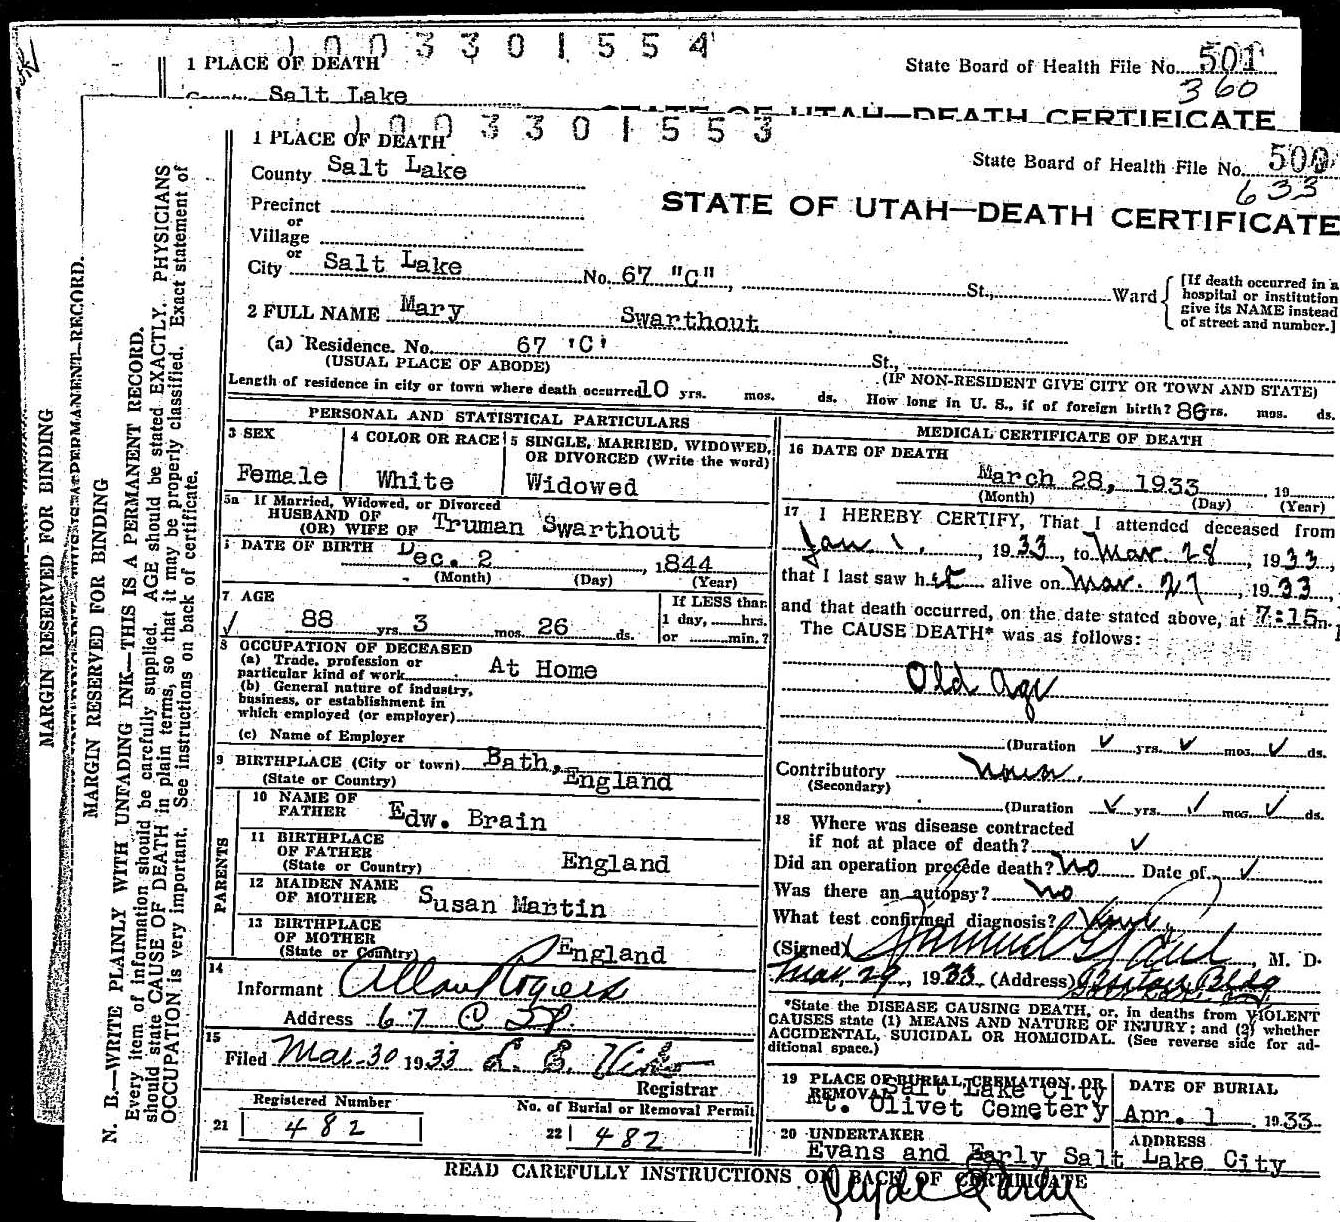 1003301554
1 PLACE OF DEATH
State Board of Health File No. 501
360
Salt Lake
STATE OF UTAH—DEATH CERTIFICATE
1003301553
1 PLACE OF DEATH
State Board of Health File No. 500
633
County Salt Lake
STATE OF UTAH—DEATH CERTIFICATE
Precinct
or
Village
or
City Salt Lake No. 67 "C", St., Ward
[If death occurred in a
hospital or institution
give its NAME instead
of street and number.]
2 FULL NAME Mary Swarthout
(a) Residence. No. 67 'C' St.,
(USUAL PLACE OF ABODE) (IF NON-RESIDENT GIVE CITY OR TOWN AND STATE)
Length of residence in city or town where death occurred 10 yrs. mos. ds. How long in U. S., if of foreign birth? 86 rs. mos. ds.
PERSONAL AND STATISTICAL PARTICULARS
3 SEX
Female
4 COLOR OR RACE
White
5 SINGLE, MARRIED, WIDOWED,
OR DIVORCED (Write the word)
Widowed
5a If Married, Widowed, or Divorced
HUSBAND OF
(OR) WIFE OF Truman Swarthout
DATE OF BIRTH Dec. 2, 1844
(Month) (Day) (Year)
7 AGE
If LESS than
1 day, hrs.
or min.?
88 yrs. 3 mos. 26 ds.
8 OCCUPATION OF DECEASED
(a) Trade, profession or
particular kind of work At Home
(b) General nature of industry,
business, or establishment in
which employed (or employer)
(c) Name of Employer
9 BIRTHPLACE (City or town) Bath,
(State or Country) England
PARENTS
10 NAME OF
FATHER Edw. Brain
11 BIRTHPLACE
OF FATHER
(State or Country) England
12 MAIDEN NAME
OF MOTHER Susan Martin
13 BIRTHPLACE
OF MOTHER
(State or Country) England
14
Informant Allan Rogers
Address 67 C St.
15
Filed Mar 30 1933
Registrar
Registered Number
21 482
No. of Burial or Removal Permit
22 482
MEDICAL CERTIFICATE OF DEATH
16 DATE OF DEATH
March 28, 1933, 19
(Month) (Day) (Year)
17 I HEREBY CERTIFY, That I attended deceased from
Jan 1, 1933, to Mar. 28, 1933,
that I last saw h alive on Mar. 27, 1933,
and that death occurred, on the date stated above, at 7:15 m.
The CAUSE DEATH* was as follows:
Old Age
(Duration ✓ yrs. ✓ mos. ✓ ds.
Contributory
(Secondary)
(Duration ✓ yrs. ✓ mos. ✓ ds.
18 Where was disease contracted
if not at place of death? ✓
Did an operation precede death? No Date of ✓
Was there an autopsy? No
What test confirmed diagnosis?
(Signed) Samuel G. Paul, M. D.
Mar. 29, 1933 (Address) Bldg
*State the DISEASE CAUSING DEATH, or, in deaths from VIOLENT
CAUSES state (1) MEANS AND NATURE OF INJURY; and (2) whether
ACCIDENTAL, SUICIDAL OR HOMICIDAL. (See reverse side for ad-
ditional space.)
19 PLACE OF BURIAL, CREMATION, OR
REMOVAL Salt Lake City
Mt. Olivet Cemetery
DATE OF BURIAL
Apr. 1 1933
20 UNDERTAKER
Evans and Early
ADDRESS
Salt Lake City
Clyde Early
READ CAREFULLY INSTRUCTIONS ON BACK OF CERTIFICATE
MARGIN RESERVED FOR BINDING
MARGIN RESERVED FOR BINDING
N. B.—WRITE PLAINLY WITH UNFADING INK—THIS IS A PERMANENT RECORD.
Every item of information should be carefully supplied. AGE should be stated EXACTLY. PHYSICIANS
should state CAUSE OF DEATH in plain terms, so that it may be properly classified. Exact statement of
OCCUPATION is very important. See instructions on back of certificate.